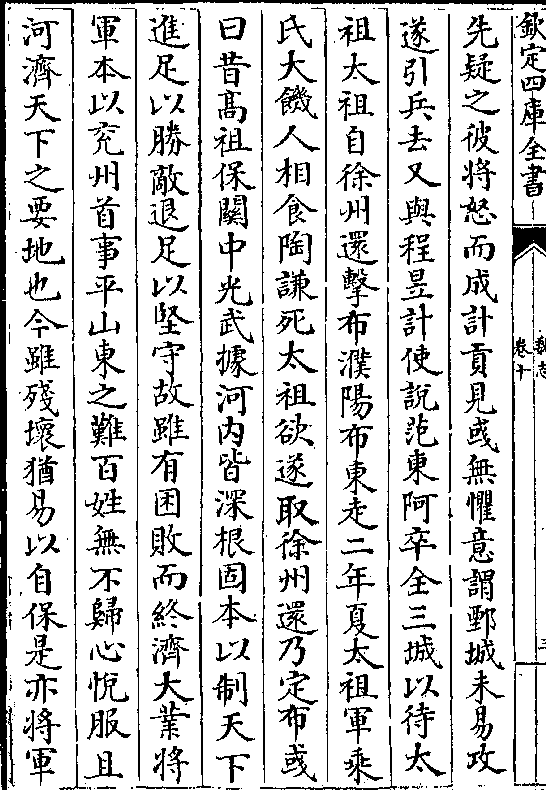 欽定四庫全書
魏志
卷十
三
先疑之彼將怒而成計貢見彧無懼意謂鄄城未易攻
遂引兵去又與程昱計使說范東阿卒全三城以待太
祖太祖自徐州還擊布濮陽布東走二年夏太祖軍乘
氏大饑人相食陶謙死太祖欲遂取徐州還乃定布彧
曰昔髙祖保關中光武據河内皆深根固本以制天下
進足以勝敵退足以堅守故雖有困敗而終濟大業將
軍本以兖州首事平山東之難百姓無不歸心悦服且
河濟天下之要地也今雖殘壊猶易以自保是亦將軍